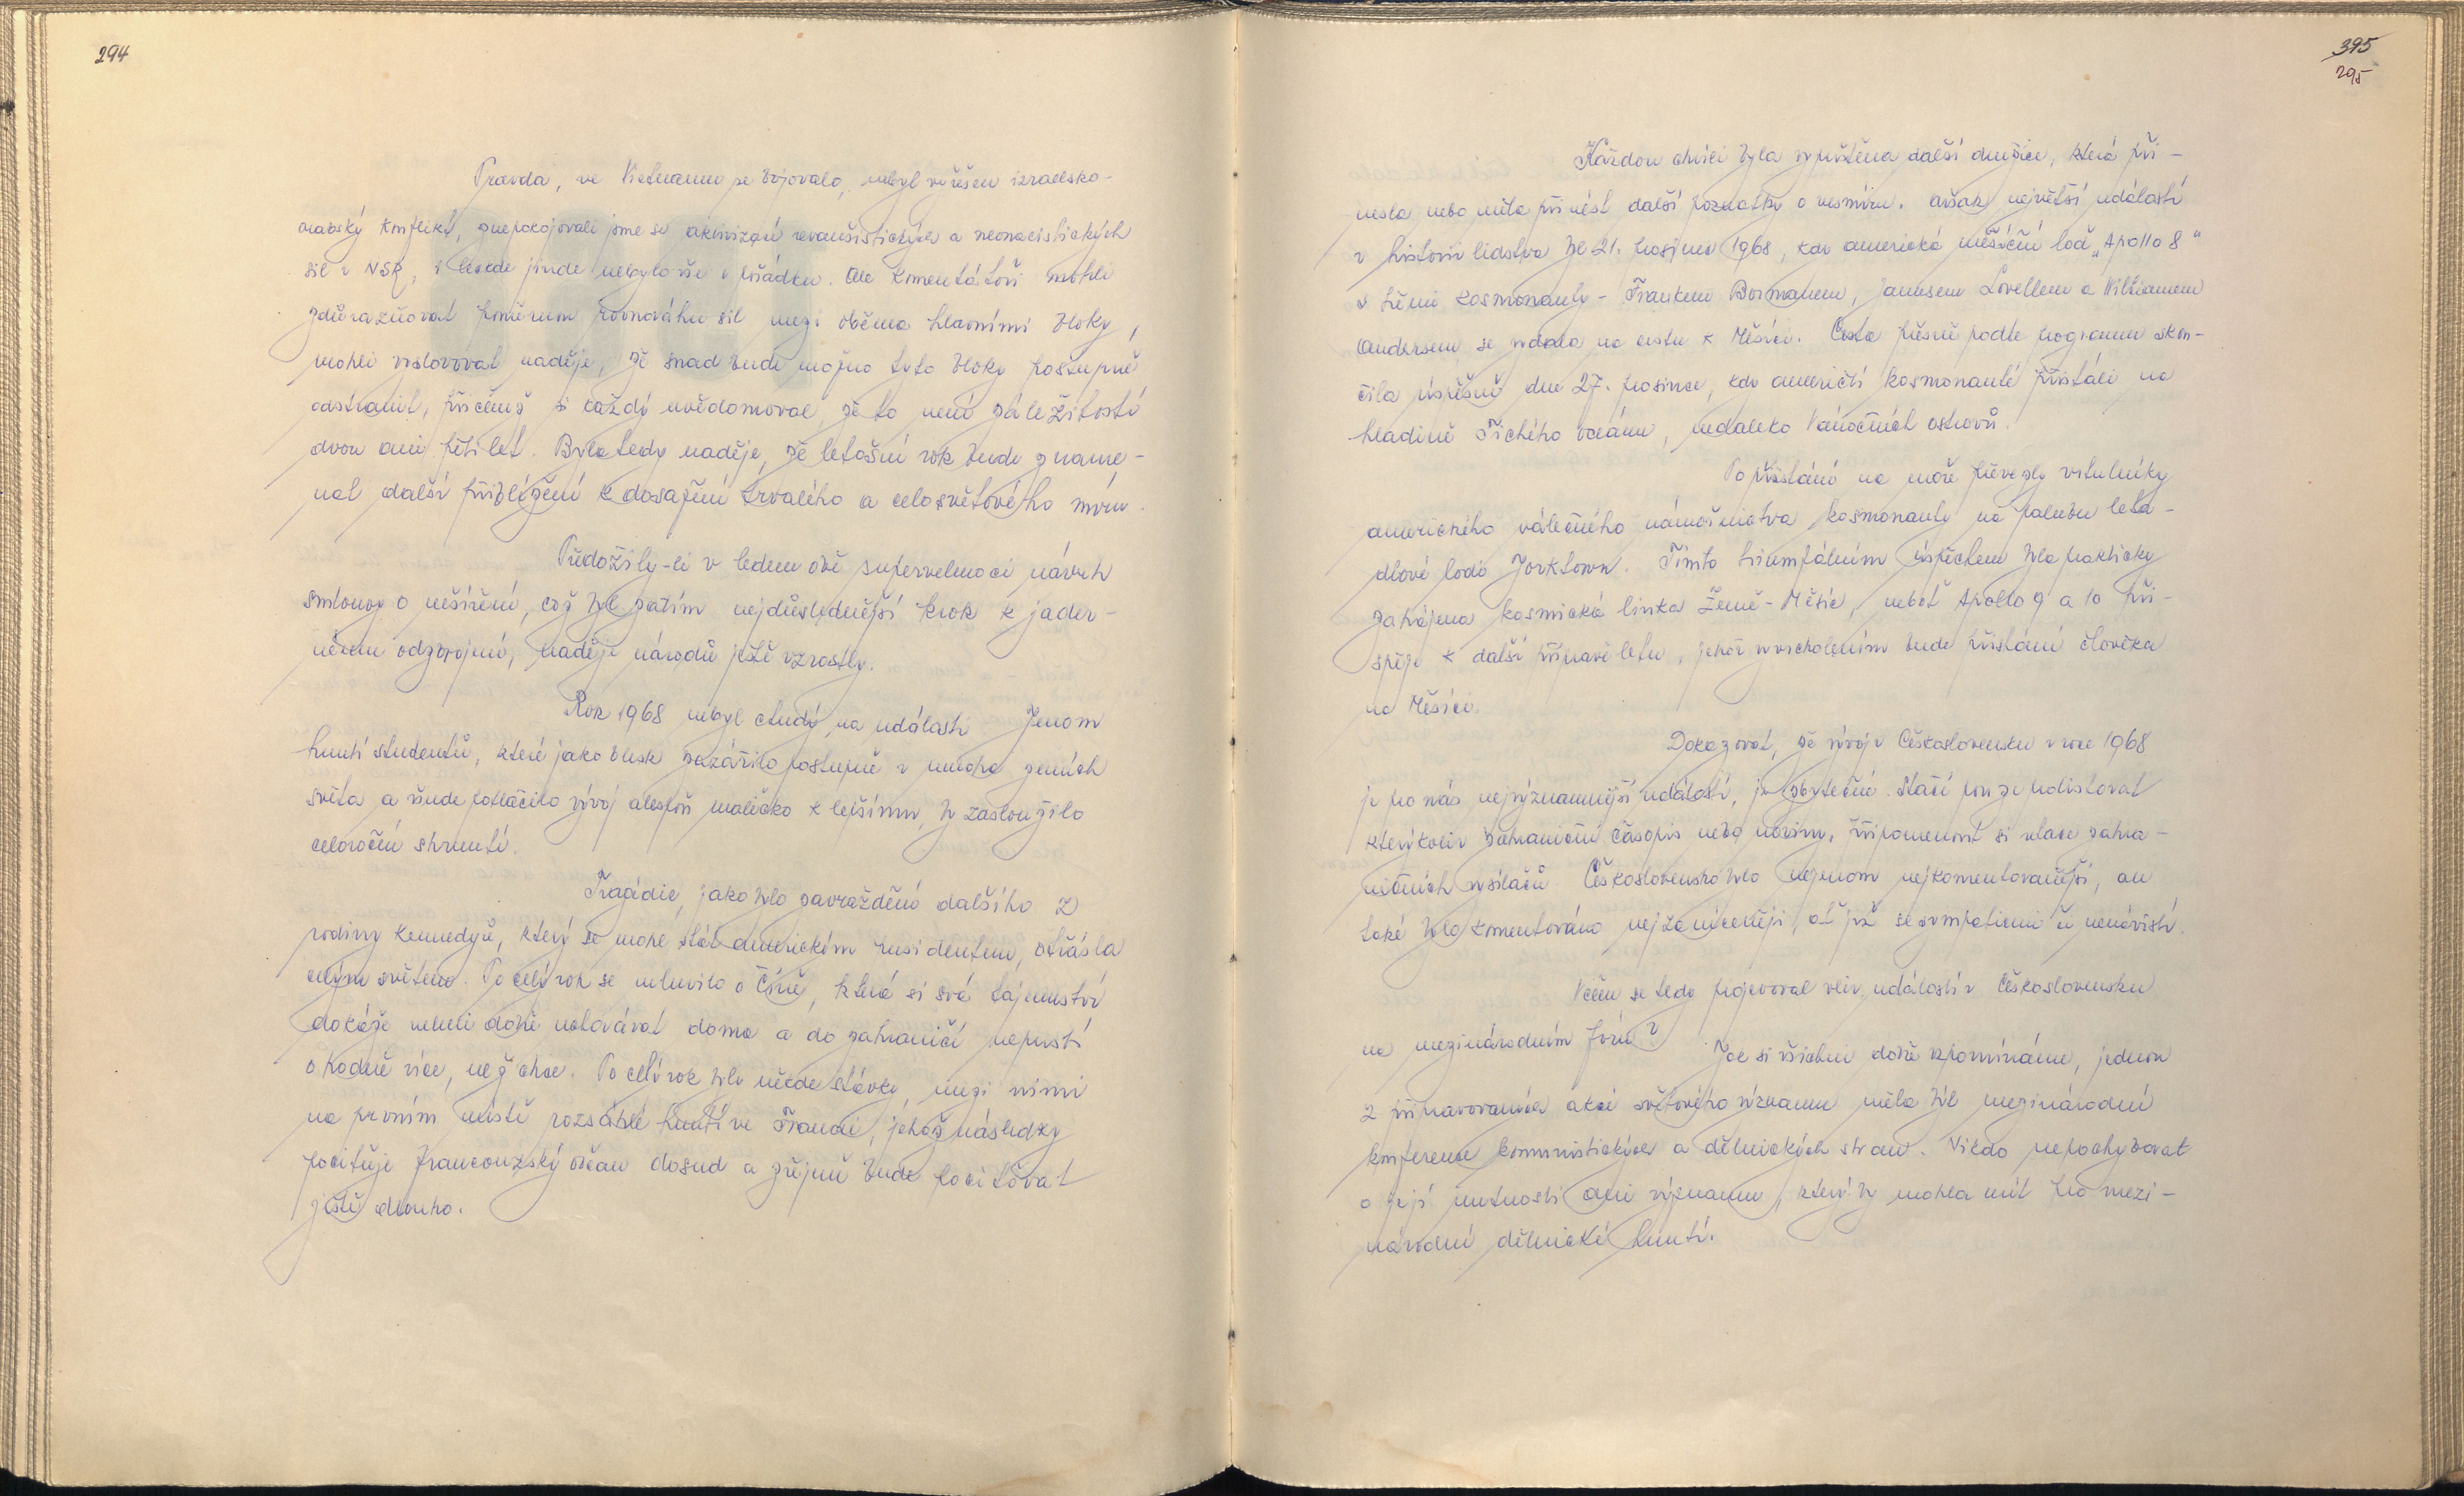 294
Pravda, ve Vietnamu se bojovalo, nebyl vyřešen izraelsko-
arabský konflikt, znepokojovali jsme se aktivizací revanšistických a neonacistických
sil v NSR, i leckde jinde nebylo vše v pořádku. Ale komentátoři mohli
zdůrazňovat poměrnou rovnováhu sil mezi oběma hlavními bloky,
mohli vyslovovat naděje, že snad bude možno tyto bloky postupně
odstranit, přičemž si každý uvědomoval, že to není záležitostí
dvou ani pěti let. Byla tedy naděje, že letošní rok bude zname-
nat další přiblížení k dosažení trvalého a celosvětového míru.
Předožily-li v lednu obě supervelmoci návrh
smlouvy o nešíření, což byl zatím nejdůslednější krok k jader-
nému odzbrojení, naděje národů ještě vzrostly.
Rok 1968 nebyl chudý na události. Jenom
hnutí studentů, které jako blesk zazářilo postupně v mnoha zemích
světa a všude potlačilo vývoj alespoň maličko k lepšímu, by zasloužilo
celoroční shrnutí.
Tragédie, jako bylo zavraždění dalšího z
rodiny Kennedyů, který se mohl stát americkým presidentem, otřásla
celým světem. Po celý rok se mluvilo o Číně, která si svá tajemství
dokáže velmi dobře uchovávat doma a do zahraničí nepustí
o hodně více, než chce. Po celý rok byly někde stávky, mezi nimi
na prvním místě rozsáhlé hnutí ve Francii, jehož následky
pociťuje francouzský občan dosud a zřejmě bude pociťovat
ještě dlouho.
395
295
Každou chvíli byla vypuštěna další družice, která při-
nesla nebo měla přinést další poznatky o vesmíru. Avšak největší událostí
v historii lidstva byl 21. prosinec 1968, kdy americká měsíční loď „Apollo 8"
s třemi kosmonauty - Frankem Bormanem, Jamesem Lovellem a Williamem
Andersem se vydala na cestu k Měsíci. Cesta přesně podle programu skon-
čila úspěšně dne 27. prosince, kdy američtí kosmonauté přistáli na
hladině Tichého oceánu, nedaleko Vánočních ostrovů.
Po přistání na moře převezly vrtulníky
amerického válečného námořnictva kosmonauty na palubu leta-
dlové lodě Yorktown. Tímto triumfálním úspěchem byla prakticky
zahájena kosmická linka Země-Měsíc, neboť Apollo 9 a 10 při-
spěje k další přípravě letu, jehož vyvrcholením bude přistání člověka
na Měsíci.
Dokazovat, že vývoj v Československu v roce 1968
je pro nás nejvýznamnější událostí, je zbytečné. Stačí pouze prolistovat
kterýkoliv zahraniční časopis nebo noviny, připomenout si relace zahra-
ničních vysílačů. Československo bylo nejenom nejkomentovanější, an
také bylo komentováno nejzaníceněji, ať již se sympatiemi či nenávistí.
Včem se tedy projevoval vliv událostí v Československu
na mezinárodním foru?
Jak si všichni dobře vzpomínáme, jednou
z připravovaných akcí světového významu měla být mezinárodní
konference komunistických a dělnických stran. Nikdo nepochyboval
o její nutnosti ani významu, který by mohla mít pro mezi-
národní dělnické hnutí.